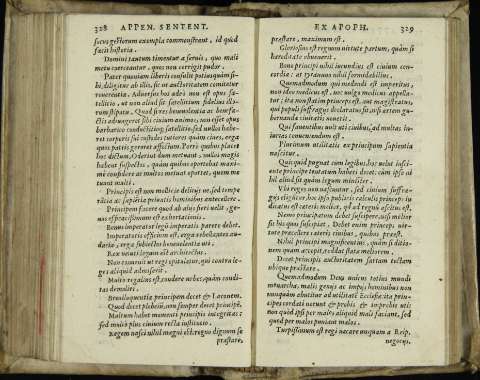 328 APPEN. SENTENT.
secus gestorum exempla commonstrant, id quod
facit historia.
Domini tantum timentur a seruis, quo mali
metu coerceantur, quos non corrigit pudor.
Pater quoniam liberis consulit potius quàm si-
bi, diligitur ab illis, sic ut authoritatem comitetur
reuerentia. Aduersus hos adeò non est opus sa-
tellitio, ut non aliud sit satellitium fidelius illo-
rum stipatu. Quod si rex beneuolentia ac benefa-
ctis adiungeret sibi ciuium animos, non esset opus
barbarico conductitioque satellitio, sed nullos habe-
ret corporis sui custodes tutiores quàm ciues, erga
quos patris gereret affectum. Porrò quibus placet
hoc dictum, Oderint dum metuant, nullos magis
habeat suspectos, quàm quibus oportebat maxi-
mè considere ac multos metuat oportet, quem me
tuunt multi.
Principis est non mollicie delicijs'que, sed tempe
rãtia ac sapiẽtia priuatis hominibus antecellere.
Principem facere quod ab alijs fieri uelit, ge-
nus est præcipuum exhortationis.
Bonus imperator legit imperatis parere debet.
Imperatoris officium est, erga rebellantes au-
dacia, erga subiectos beneuolentia uti.
Rex uenustiorum ciuit architectus.
Non conuenit ut regi opituletur, qui contra le-
ges aliquid admiserit.
Multo regalius est, condere urbes, quàm condi-
tas demoliri.
Breuiloquentia principem decet & Laconem.
Quod decet plebeiũ, non semper decet principẽ.
Multum habet momenti principis integritas:
sed multò plus ciuium recta institutio.
Regem nasci nihil magni est: regno dignum se
præstare,
EX APOPH. 329
præstare, maximum est.
Gloriosius est regnum uirtute partum, quàm si
hæreditate obuenerit.
Bono principi nihil iucundius est ciuium con-
cordia: at tyranno nihil formidabilius.
Quemadmodum qui medendi est imperitus,
non ideo medicus est, quòd uulgo medicus appella-
tur: ita non statim princeps est, aut magistratus,
qui populi suffragijs declaratus sit, nisi artem gu-
bernandæ ciuitatis nouerit.
Qui fauentibus uult uti ciuibus, ad multas in-
iurias conniuendum est.
Plurimum utilitatis ex principum sapientia
nascitur.
Quicquid pugnat cum legibus, hoc uelut inso-
cente principe iniustum haberi decet: cùm ipse ni
hil aliud sit quàm legum minister.
Vbi reges non nascuntur, sed ciuium suffra-
gijs eliguntur hoc ipso publicis calculis princeps iu
dicatus est cæteris melior, qui ad regnũ ascitus est.
Nemo principatum debet suscipere, nisi melior
sit his quos suscipiat. Debet enim princeps uir-
tute præcellere cæteris ciuibus, quibus præest.
Nihil principi magnificentius, quàm si ditio-
nem quam accepit, reddat statu meliorem.
Decet principis authoritatem sartam tectam
ubique præstare.
Quemadmodum Deus unicus totius mundi
monarcha, malis genijs ac impijs hominibus non
nunquam abutitur ad utilitatẽ Ecclesiæ: ita prin-
cipes cordati utuntur & probis & improbis uiris
non quòd ipsi per malos aliquid mali faciant, sed
quòd per malos puniant malos.
Turpissimum est regi uacare unquam à Reip.
negocijs.